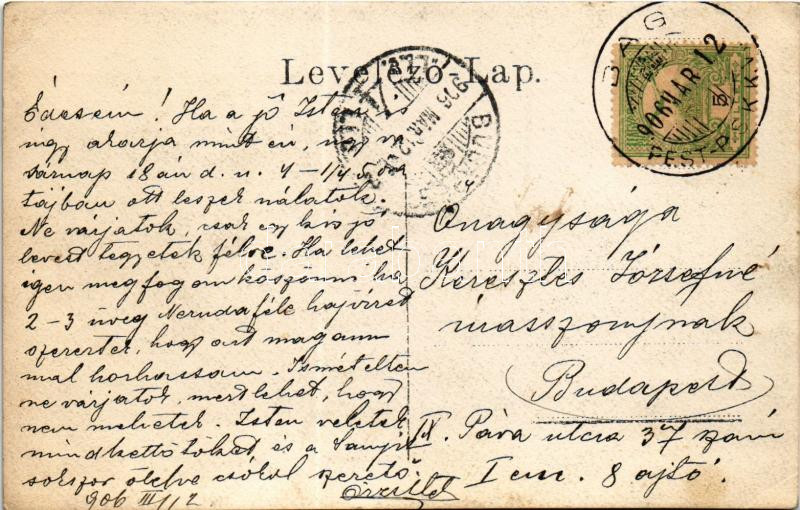 Levelező-Lap.
BAG
906 MÁR 12
PEST-P.S.K.K.VM
906 MÁR
BUDAPEST
Édesem! Ha a jó Isten is
úgy akarja mint én, úgy
várnap 18 án d. u. 4-1/4 5 óra
tájban ott leszek nálatok.
Ne várjatok, csak egy kis jó
levest tegyetek félre. Ha lehet
igen megfogom köszönni ha
2-3 üveg Neruda féle hajvizet
szereztek, hogy azt magam
mal hozhassam. Ismételten
ne várjatok, mert lehet, hogy
nem mehetek. Isten veletek
mindkettőtöket és a
sokszor ölelve csókol szerető
906 III/12
Őnagysága
Keresztes Józsefné
úrasszonynak
Budapest
IX. Páva utca 37 szám
I em. 8 ajtó.